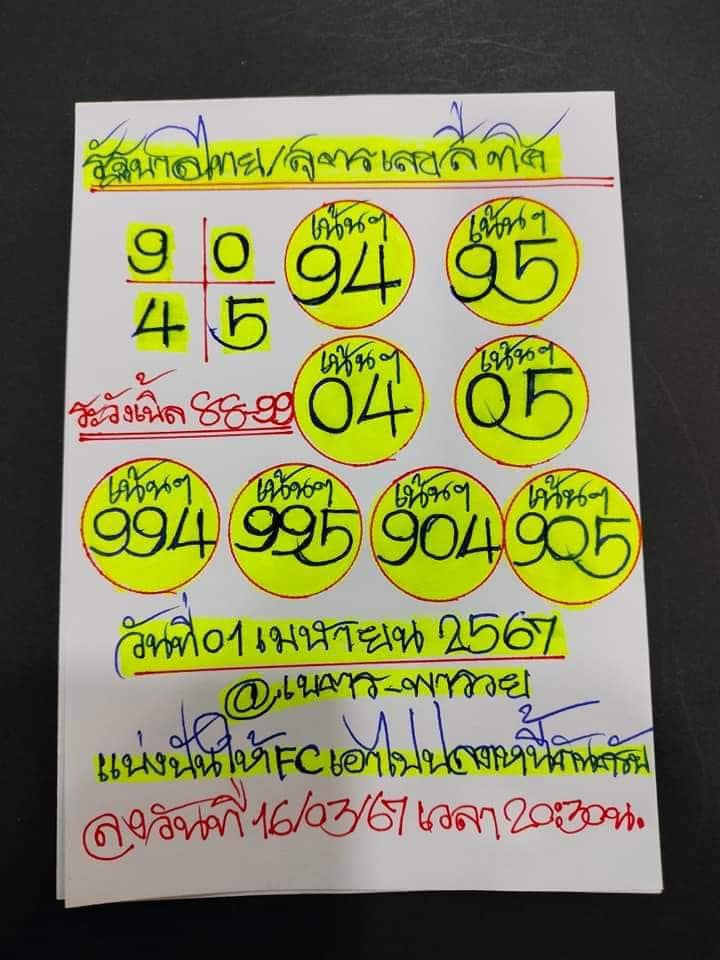 รัฐบาลไทย/สูตรเลขสี่ทิศ
9 0
4 5
เน้นๆ 94
เน้นๆ 95
เน้นๆ 04
เน้นๆ 05
ระวังเบิ้ล 88-99
เน้นๆ 994
เน้นๆ 995
เน้นๆ 904
เน้นๆ 905
วันที่ 01 เมษายน 2567
@เนตร-พารวย
แบ่งปันให้ FC เอาไปปลดหนี้กันครับ
ลงวันที่ 16/03/67 เวลา 20:30น.